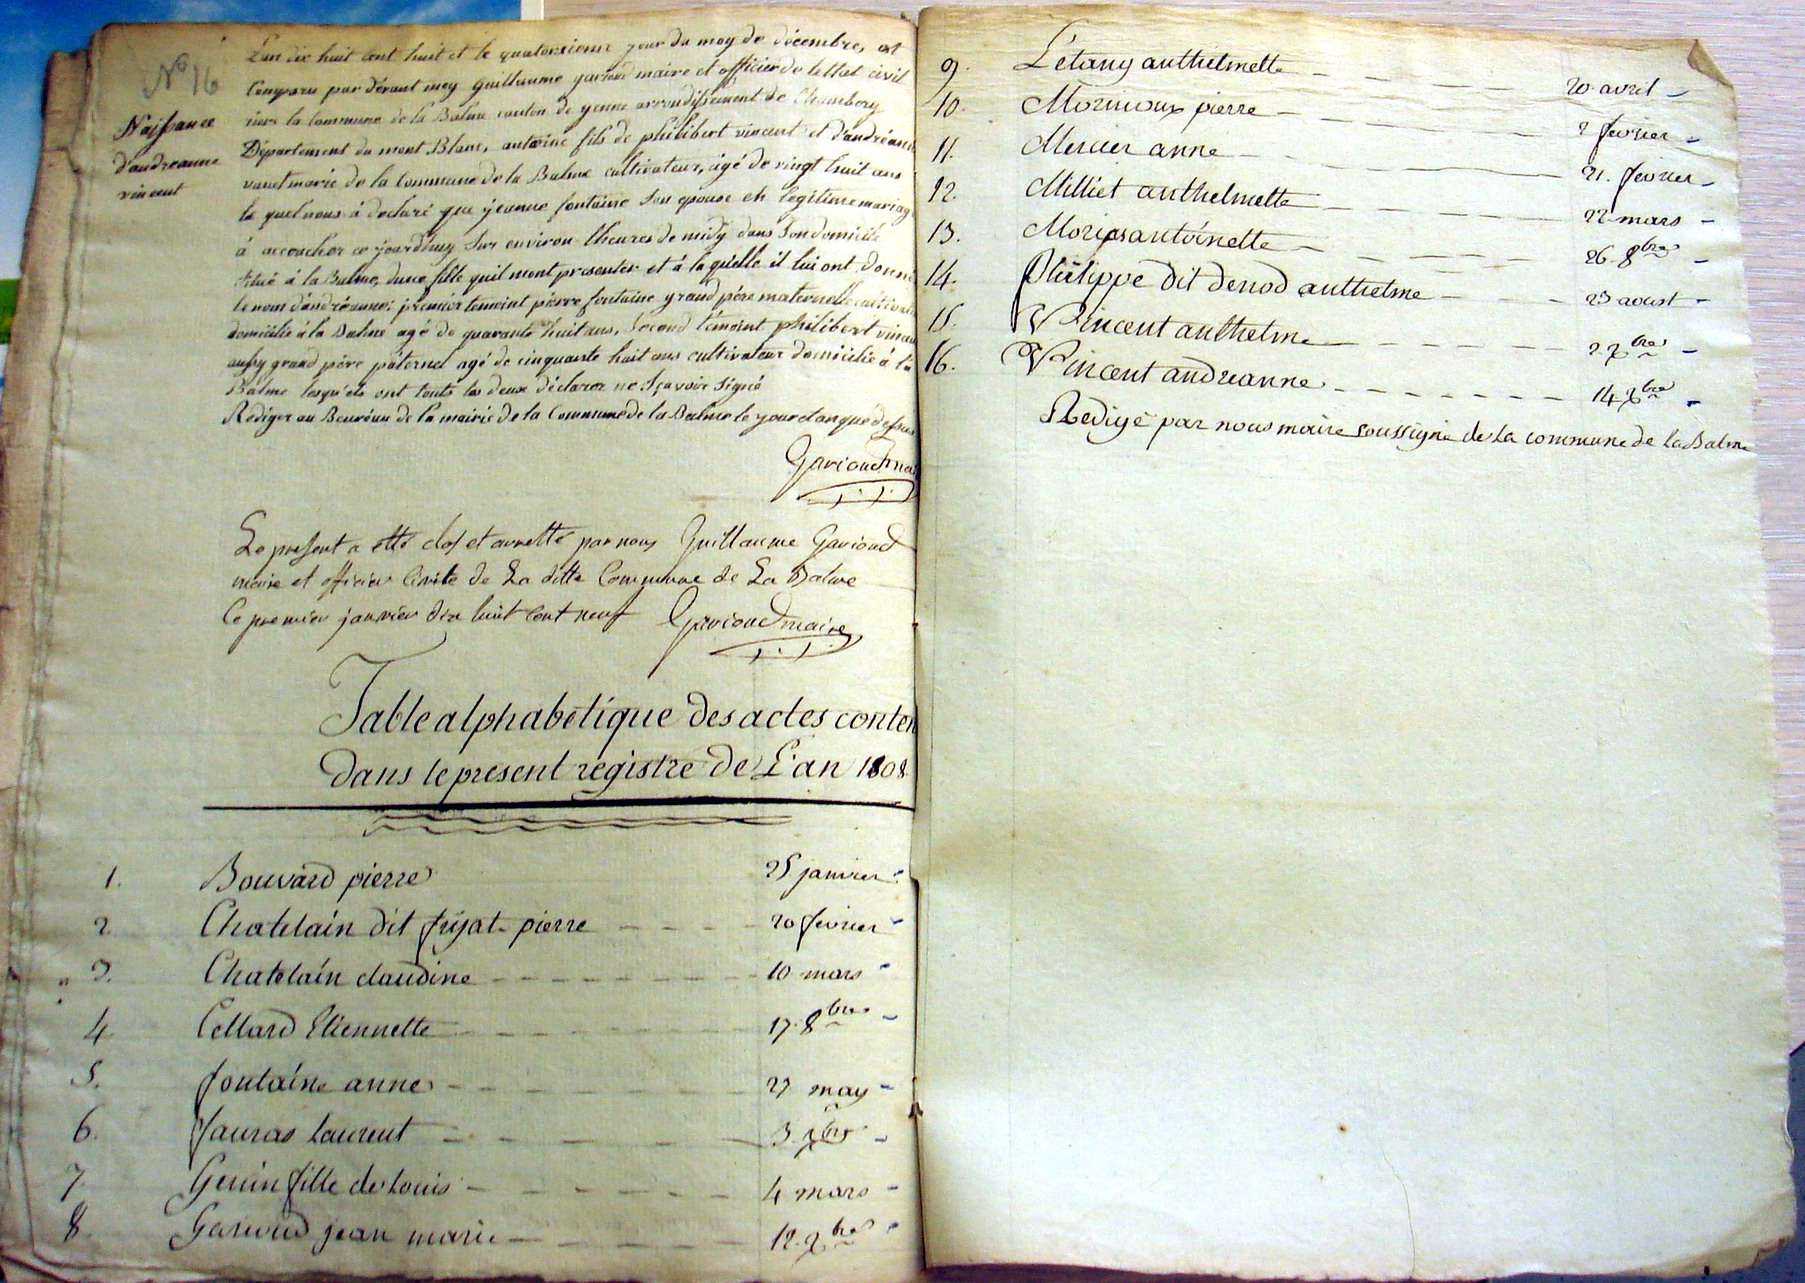 N° 16
Naissance
d'andreanne
vincent
L'an dix huit cent huit et le quatorzieme jour du moy de décembre, est
Comparu par dévant moy guillaume gavioud maire et officier de lettat civil
la Commune de la Balme canton de yenne arrondissement de Chambery
Département du mont Blanc, antoine fils de philibert vincent et d'andréanne
marie de la Commune de la Balme cultivateur, agé de vingt huit ans
le quel nous à declaré que jeanne fontaine son epouse en legitime mariage
à accoucher ce jourd'huy sur environ lheures de midy dans son domicile
situé à la Balme, dune fille quil mont presenter et à laquelle il lui ont donné
le nom d'andréanne. premier temoint pierre fontaine grand pére maternelle cultivateur
domicilié à la Balme agé de quarante huit ans, second témoint philibert vincent
aussy grand pére páternel agé de cinquante huit ans cultivateur domicilié à la
Balme lesquels ont touts les deux déclarer ne sçavoir signé
Rediger au Beuréau de la mairie de la Commune de la Balme le jour et an que dessus
Gavioud mai
Le present a etté clos et arretté par nous Guillaume Gavioud
maire et officier Civile de La ditte Commune de La Balme
Ce premier janvier dix huit cent neuf Gavioud maire
Table alphabetique des actes conten
dans le present registre de L'an 1808
1. Bouvard pierre 25 janvier
2 Chatelain dit frijat pierre 20 fevrier
3. Chatelain claudine 10 mars
4 Cellard Etiennette 17. 8bre
5. fontaine anne 27 may
6. fauras Laurent 3. xbre
7 Genin fille de Louis 4 mars
8. Gavioud jean marie 12. xbre
9. L'etang anthelmette 20 avril
10. Morinoux pierre 2 fevrier
11. Mercier anne 21. fevrier
12. Milliet anthelmette 22 mars
13. Moripsantoinette 26. 8bre
14. Philippe dit denod anthelme 23 aoust
15. Vincent anthelme 2 xbre
16. Vincent andreanne 14 xbre
Redigé par nous maire soussigné de La commune de la Balme